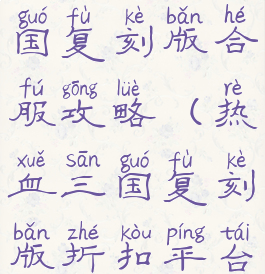 guó fù kè bǎn hé
国复刻版合
fú gōng lüè rè
服攻略（热
xuě sān guó fù kè
血三国复刻
bǎn zhé kòu píng tái
版折扣平台